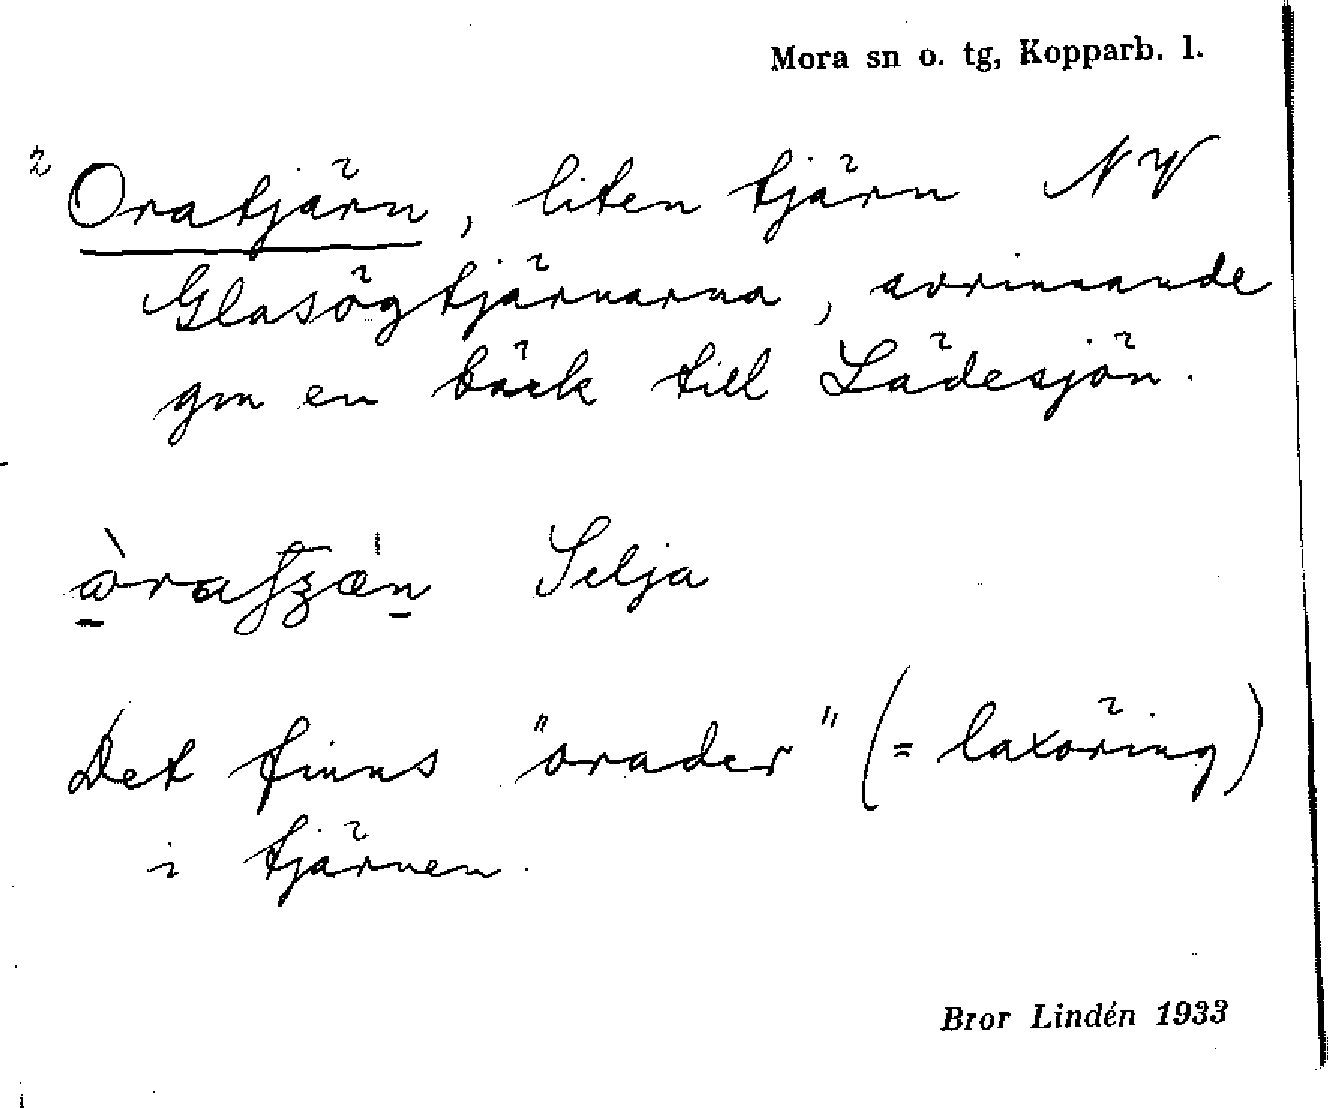 Mora sn o. tg, Kopparb. l.
2 Oratjärn, liten tjärn NV
Glasögtjärnarna, avrinnande
gm en bäck till Lädesjön.
Selja
Det finns "orader" (= laxöring)
i tjärnen.
Bror Lindén 1933